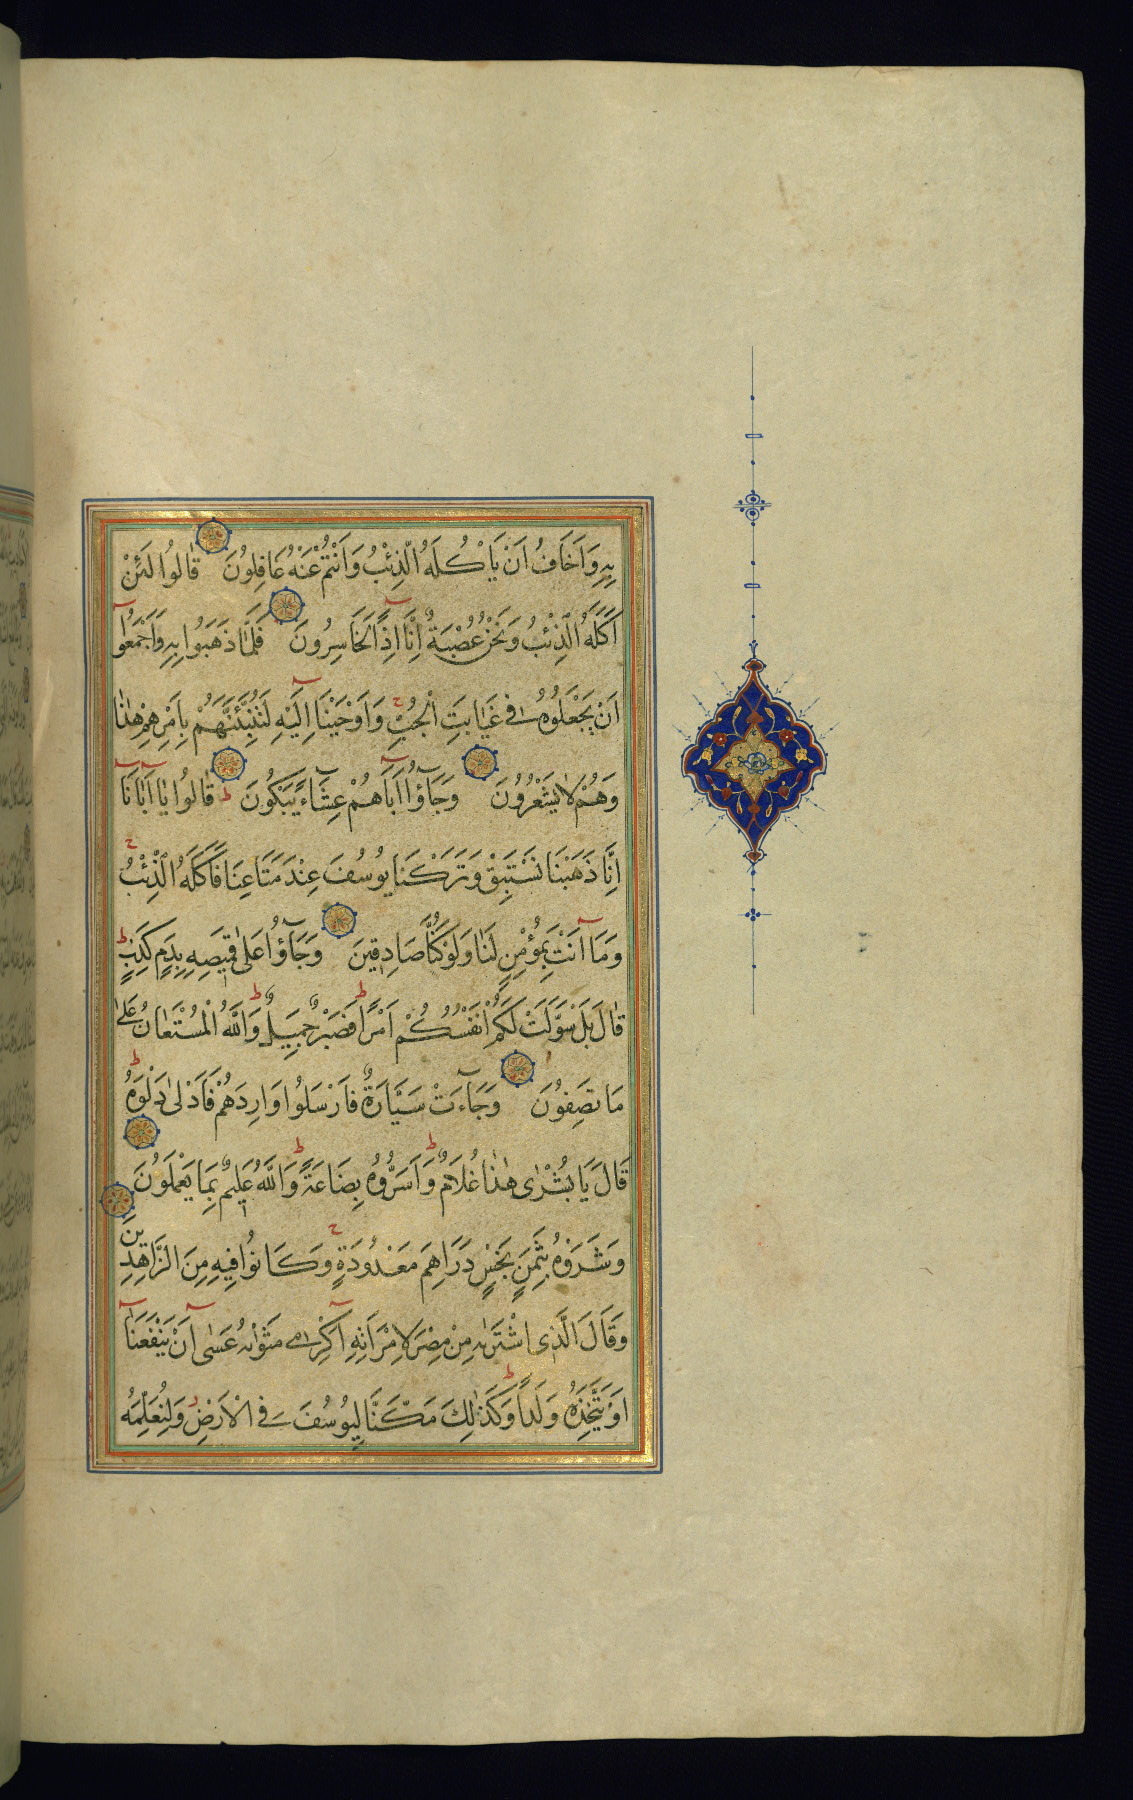 بِهِ وَاَخَافُ اَنْ يَاْكُلَهُ الذِّئْبُ وَاَنْتُمْ عَنْهُ غَافِلُونَ قَالُوا لَئِنْ
اَكَلَهُ الذِّئْبُ وَنَحْنُ عُصْبَةٌ اِنَّا اِذًا لَخَاسِرُونَ فَلَمَّا ذَهَبُوا بِهِ وَاَجْمَعُوا
اَنْ يَجْعَلُوهُ فِي غَيَابَتِ الْجُبِّ وَاَوْحَيْنَا اِلَيْهِ لَتُنَبِّئَنَّهُمْ بِاَمْرِهِمْ هٰذَا
وَهُمْ لَا يَشْعُرُونَ وَجَاؤُا اَبَاهُمْ عِشَاءً يَبْكُونَ قَالُوا يَا اَبَانَا
اِنَّا ذَهَبْنَا نَسْتَبِقُ وَتَرَكْنَا يُوسُفَ عِنْدَ مَتَاعِنَا فَاَكَلَهُ الذِّئْبُ
وَمَا اَنْتَ بِمُؤْمِنٍ لَنَا وَلَوْ كُنَّا صَادِقِينَ وَجَاؤُا عَلٰى قَمِيصِهِ بِدَمٍ كَذِبٍ
قَالَ بَلْ سَوَّلَتْ لَكُمْ اَنْفُسُكُمْ اَمْرًا فَصَبْرٌ جَمِيلٌ وَاللّٰهُ الْمُسْتَعَانُ عَلٰى
مَا تَصِفُونَ وَجَاءَتْ سَيَّارَةٌ فَاَرْسَلُوا وَارِدَهُمْ فَاَدْلٰى دَلْوَهُ
قَالَ يَا بُشْرٰى هٰذَا غُلَامٌ وَاَسَرُّوهُ بِضَاعَةً وَاللّٰهُ عَلِيمٌ بِمَا يَعْمَلُونَ
وَشَرَوْهُ بِثَمَنٍ بَخْسٍ دَرَاهِمَ مَعْدُودَةٍ وَكَانُوا فِيهِ مِنَ الزَّاهِدِينَ
وَقَالَ الَّذِي اشْتَرٰيهُ مِنْ مِصْرَ لِامْرَاَتِهِ اَكْرِمِي مَثْوٰيهُ عَسٰى اَنْ يَنْفَعَنَا
اَوْ نَتَّخِذَهُ وَلَدًا وَكَذٰلِكَ مَكَّنَّا لِيُوسُفَ فِي الْاَرْضِ وَلِنُعَلِّمَهُ